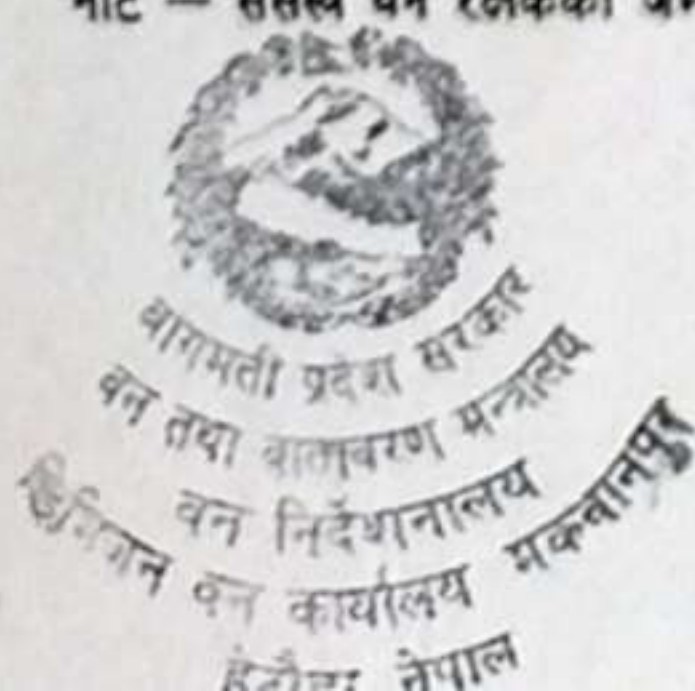 नोट – सशस्त्र वन रक्षकको
बागमती प्रदेश सरकार
वन तथा वातावरण मन्त्रालय
वन निर्देशनालय
डिभिजन वन कार्यालय मकवानपुर
हेटौडा नेपाल